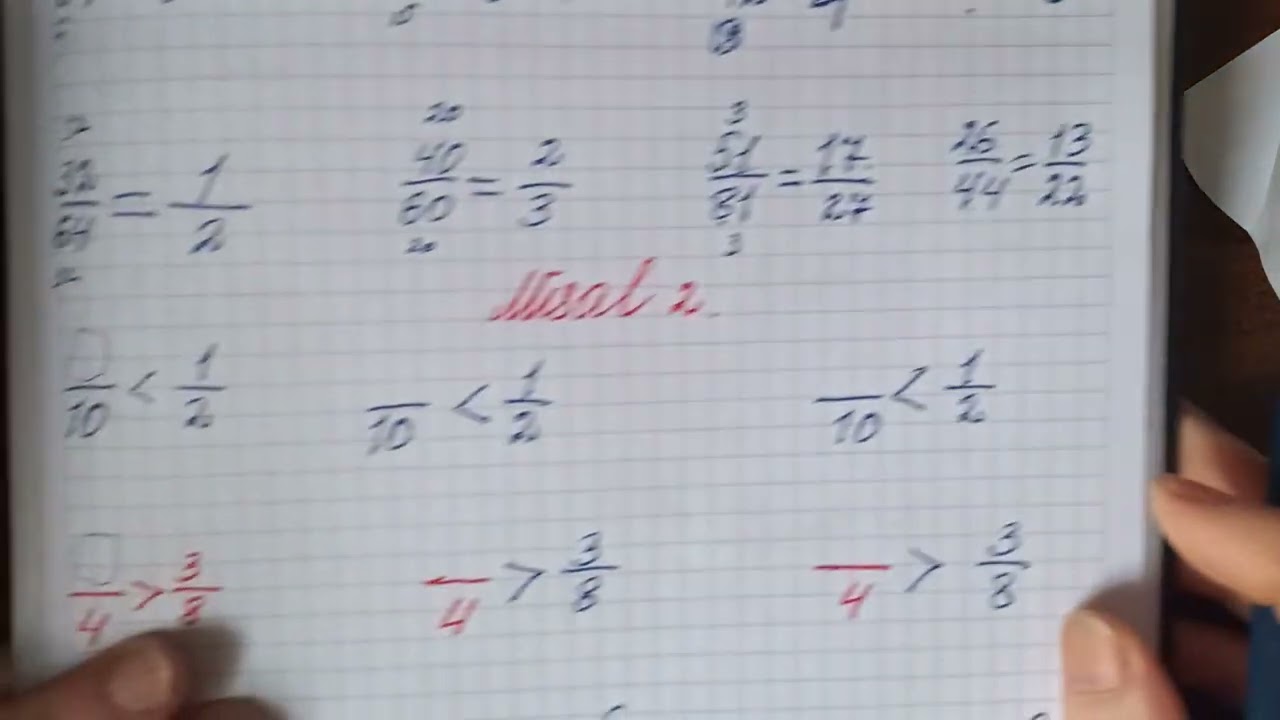 20 3
40/60 = 2/3 51/81 = 17/27 26/44 = 13/22
= 1/2
20 3
Misal 2.
□/10 < 1/2 /10 < 1/2 /10 < 1/2
□/4 > 3/8 /4 > 3/8 /4 > 3/8